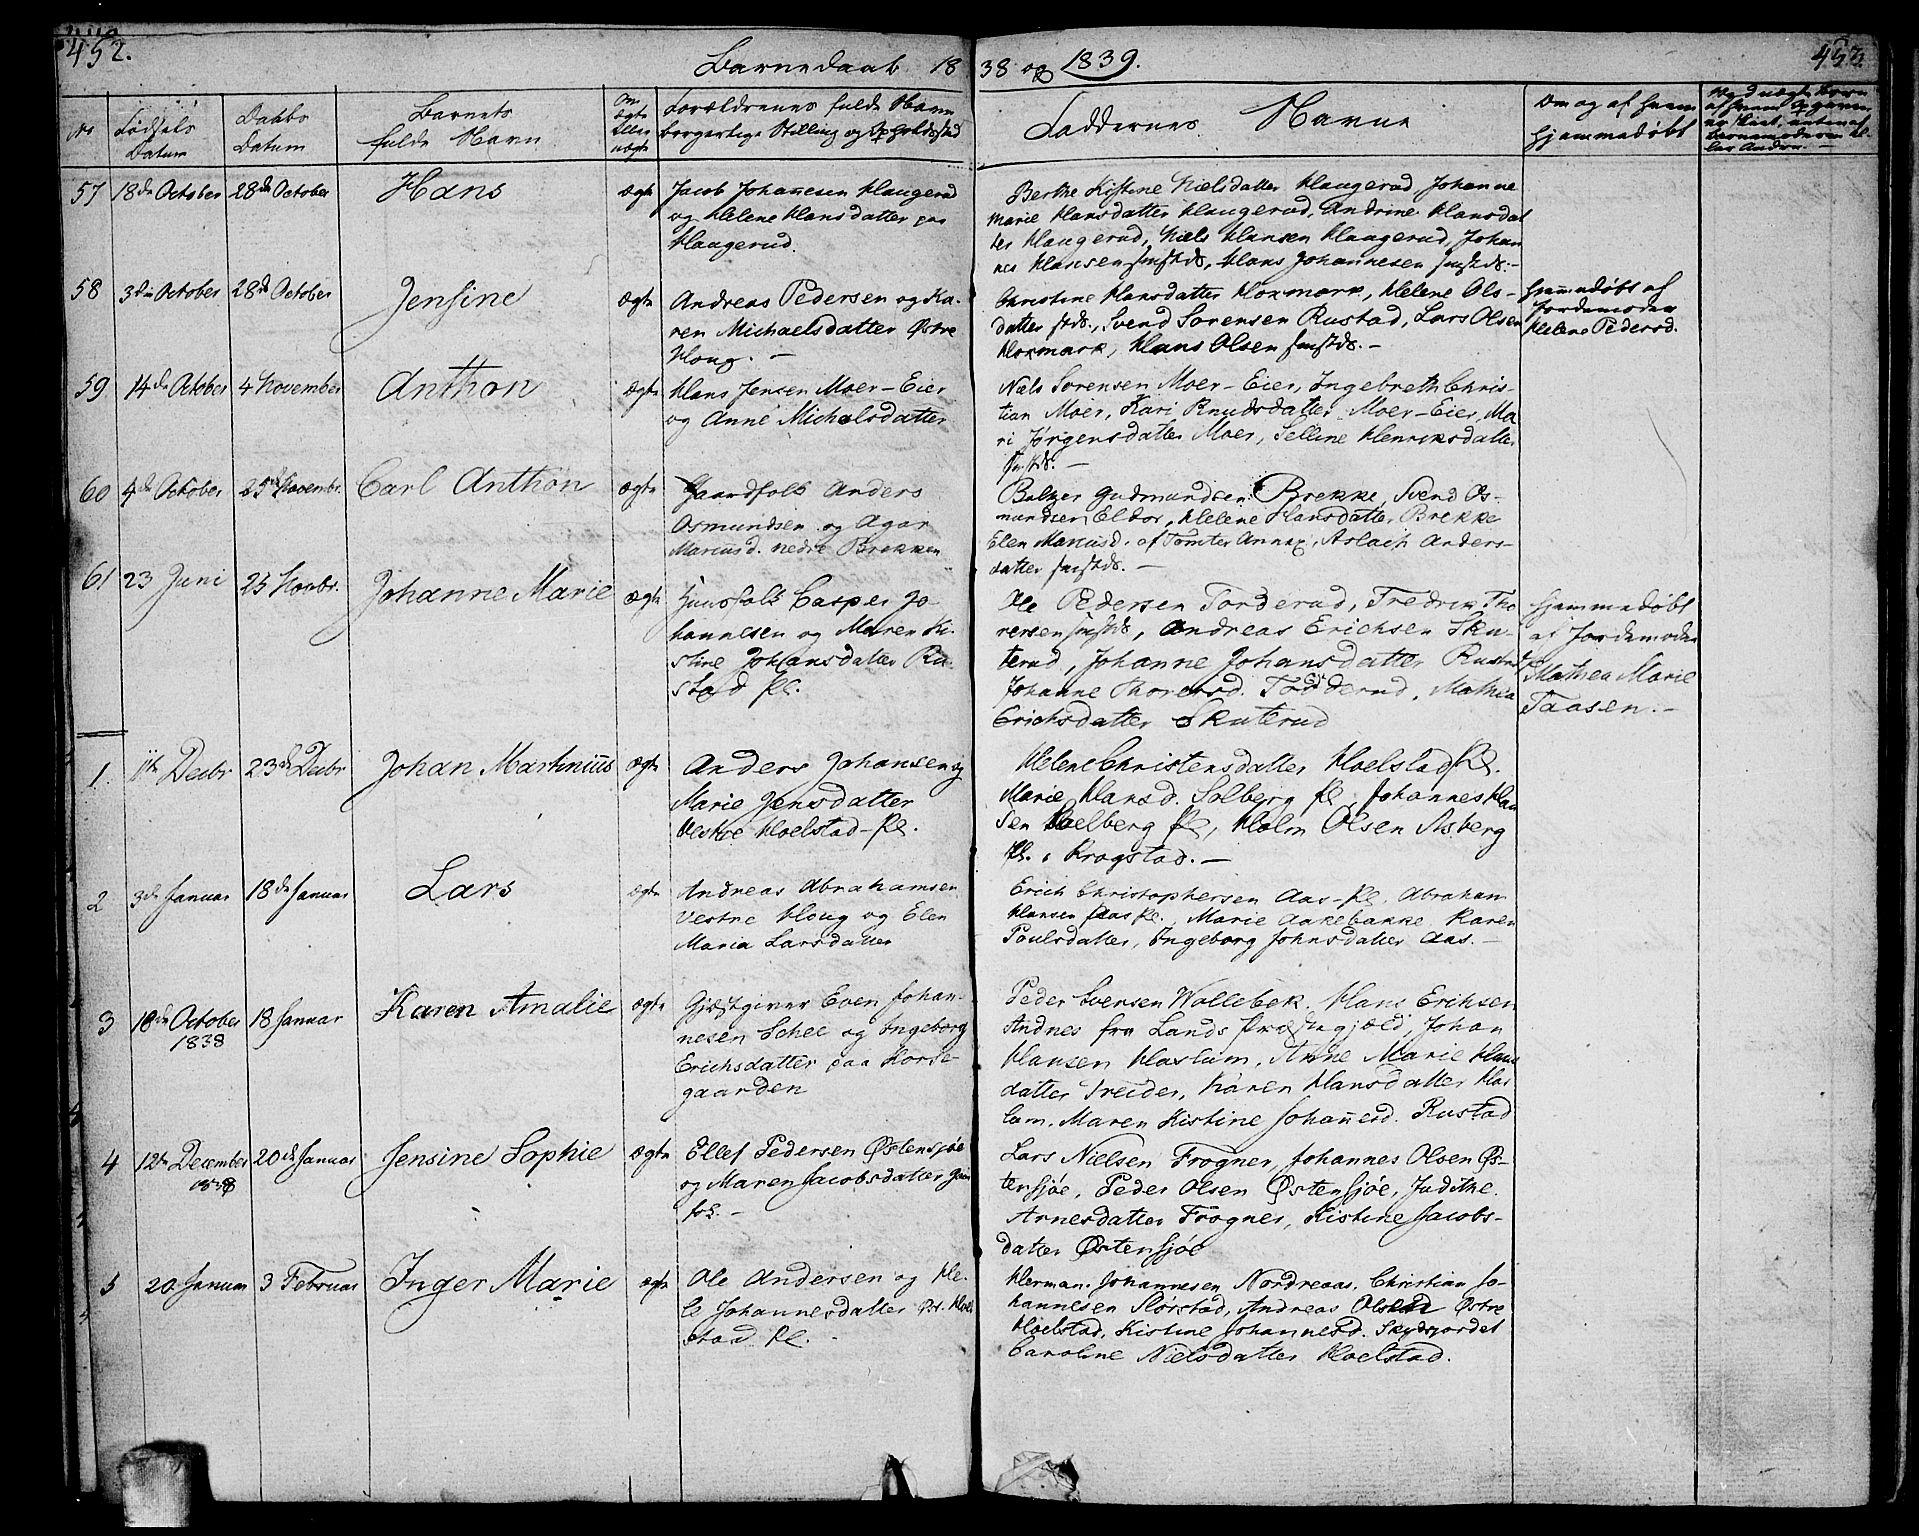 452.
Barnedaab 18
38 og 1839.
453
No
Fødsels
Datum
Daabs
Datum
Barnets
fulde Navn
Om
Ægte
eller
uægte
Forældrenes fulde Navn
borgerlige Stilling og Opholdssted
Faddernes Navne
Om og af hvem
hjemmedøbt
57 18de October 28de October Hans ægte
Jacob Johannesen Haugerud
og Helene Hansdatter paa
Haugerud.
Berthe Kistine Nielsdatter Haugerud, Johanne
Marie Hansdatter Haugerud, Andrine Hansdat
ter Haugerud, Niels Hansen Haugerud, Johan
nes Hansen sammestds., Hans Johannesen smstds.-
58 3die October 28de October Jensine ægte
Andreas Pedersen og Ka-
ren Michaelsdatter Østre
Houg. -
Christine Hansdatter Hoxmark, Helene Ols-
datter stds., Svend Sørensen Rustad, Lars Olsen
Hoxmark, Hans Olsen smstds. -
hjemmedøbt af
Jordemoder
Helene Pedersd.
59 14de October 4 November Anthon ægte
Hans Jensen Moer-Eier
og Anne Michelsdatter
Niels Sørensen Moer-Eier, Ingebreth Chris-
tian Moer, Kari Knudsdatter Moer-Eier, Ma
ri Jørgensdatter Moer,Selline Henriksdatter
smstds. -
60 4de October 25de Novembr. Carl Anthon ægte
Gaardfolk Anders
Osmundsen og Agar
Mariusd. nedre Brekken
Baltzer Gudmundsen Brekke, Svend Os-
mundsen Eldor, Helene Hansdatter Brekke
Elen Mariusd. af Tomter Annex, Aslach Anders-
datter smstds. -
61 23 Juni 25 Novbr. Johanne Marie ægte
Huusfolk Casper Jo-
hannesen og Maren Ki-
stine Johansdatter Ru-
stad Pl.
Ole Pedersen Torderud, Fredrik Tho
rersen smstds., Andreas Erichsen Sku-
terud, Johanne Johansdatter Rustad
Johanne Thorersd. Torderud, Mathea
Erichsdatter Skuterud
hjemmedøbt
af Jordemoder
Mathea Marie
Taasen. -
1. 11te Decbr 23de Decbr Johan Martinius ægte
Anders Johansen og
Marie Jensdatter
Vestre Hoelstad-Pl.
Helene Christensdatter Hoelstad Pl.
Marie Hansd. Solberg Pl., Johannes Han
sen Hoelberg Pl, Holm Olsen Asberg
Pl. i Krogstad. -
2 3de Januar 18de Januar Lars ægte
Andreas Abrahamsen
Vestre Houg og Elen
Maria Larsdatter
Erich Christophersen Aas-Pl. Abraham
Hansen Aas Pl., Marie Aakebakke Karen
Poulsdatter, Ingeborg Johnsdatter Aas. -
3 18de October 18 Januar Karen Amalie ægte
1838
Gjæstgiver Even Johan-
nesen Schee og Ingeborg
Erichsdatter paa Korse-
gaarden
Peder Svensen Wollebek. Hans Erichsen
Andnes fra Lands Præstegjæld, Johan
Hansen Haslum, Anne Marie Hans
datter Treider, Karen Hansdatter Has
lum, Maren Kistine Johannesd. Rustad
4 12te December 20de Januar Jensine Sophie ægte
1838
Ellef Pedersen Østensjøe
og Maren Jacobsdatter
Lars Nielsen Frogner, Johannes Olsen Øs-
tensjøe, Peder Olsen Østensjøe, Judithe
Arnesdatter Frogner, Kistine Jacobs-
datter Østensjøe
5 20 Januar 3 Februar Inger Marie ægte
Ole Andersen og He-
le Johannesdatter Øst. Hoel
stad Pl. -
Herman Johannesen Nordreaas, Christian Jo-
hannesen Storstad, Andreas Olsen Østre
Hoelstad, Kistine Johannesd. Skydsjordet
Caroline Nielsdatter Hoelstad.